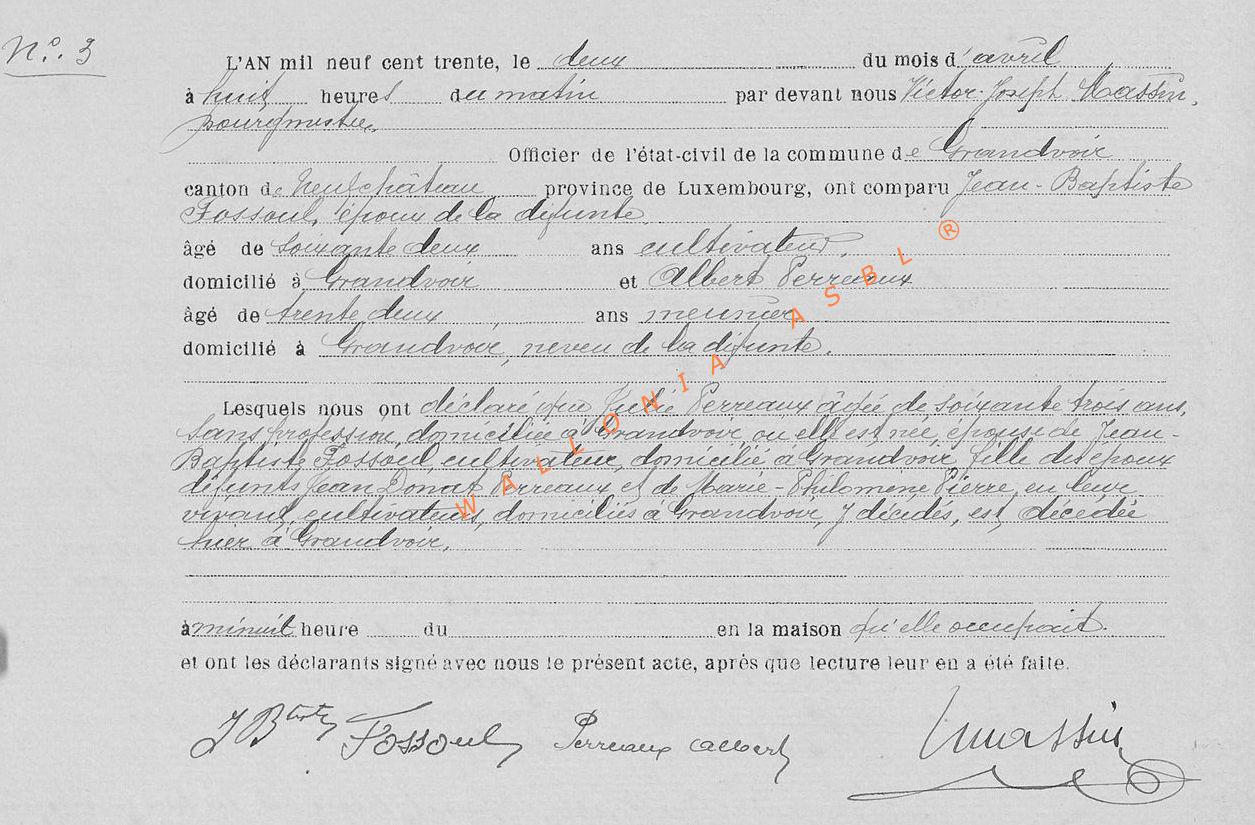 N.º 3
L'AN mil neuf cent trente, le deux du mois d'avril
à huit heures du matin par devant nous Victor-Joseph Massin,
bourgmestre,
Officier de l'état-civil de la commune de Grandvoir
canton de Neufchâteau province de Luxembourg, ont comparu Jean-Baptiste
Fossoul, époux de la défunte
âgé de soixante deux ans cultivateur,
domicilié à Grandvoir et Albert Perreaux
âgé de trente deux ans meunier
domicilié à Grandvoir, neveu de la défunte.
Lesquels nous ont déclaré que Perreaux âgée de soixante trois ans,
sans profession, domiciliée à Grandvoir, où elle est née, épouse de Jean-
Baptiste Fossoul, cultivateur, domicilié à Grandvoir, fille des époux
défunts Jean Donat Perreaux et de Marie-Philomène Pierre, en leur
vivant, cultivateurs, domiciliés à Grandvoir, y décédés, est décédée
hier à Grandvoir,
à minuit heure du en la maison qu'elle occupait.
et ont les déclarants signé avec nous le présent acte, après que lecture leur en a été faite.
J Btiste Fossoul Perreaux Albert VMassin
WALLONIA ASBL ®